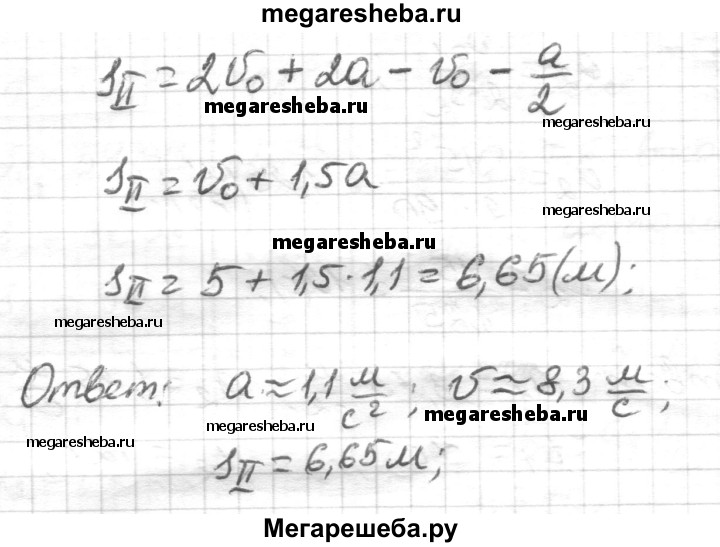 megaresheba.ru
s_II = 2v₀ + 2a − v₀ − a/2
megaresheba.ru
megaresheba.ru
s_II = v₀ + 1,5a
megaresheba.ru
megaresheba.ru
s_II = 5 + 1,5·1,1 = 6,65(м);
megaresheba.ru
Ответ: a ≈ 1,1 м/с²; v ≈ 8,3 м/с;
megaresheba.ru
megaresheba.ru
megaresheba.ru
s_II = 6,65м;
Мегарешеба.ру